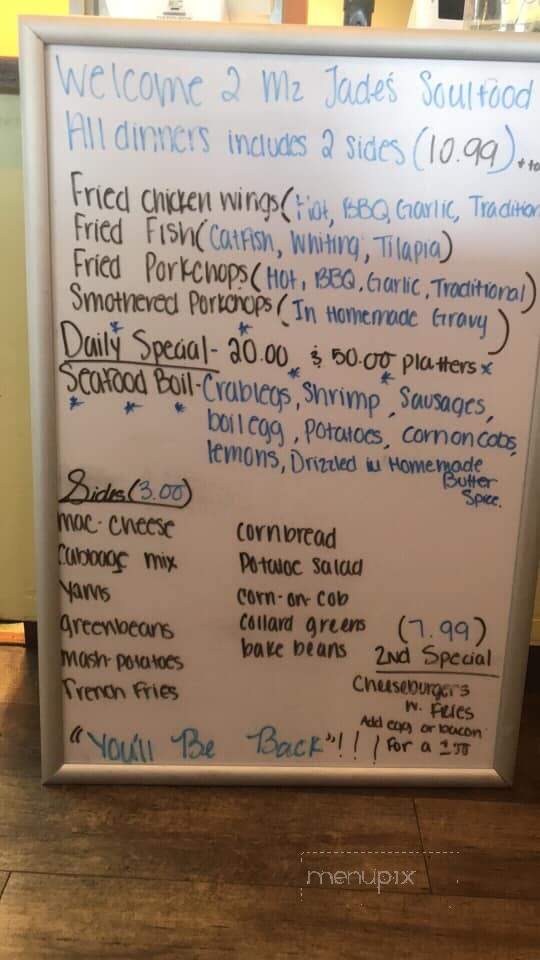 Welcome 2 Mz Jade's Soulfood
All dinners includes 2 sides (10.99)
Fried chicken wings (Hot, BBQ, Garlic, Tradition
Fried Fish (Catfish, Whiting, Tilapia)
Fried Porkchops (Hot, BBQ, Garlic, Traditional)
Smothered Porkchops (In Homemade Gravy)
Daily Special - 20.00 & 50.00 platters
Seafood Boil - Crablegs, Shrimp, Sausages,
boil egg, Potatoes, corn on cobs,
lemons, Drizzled in Homemade
Butter
Spice.
Sides (3.00)
mac-cheese
Cabbage mix
Yams
greenbeans
mash-potatoes
French Fries
cornbread
Potatoe salad
corn-on-cob
collard greens
bake beans
(7.99)
2nd Special
Cheeseburgers
w. Fries
Add egg or bacon
For a 1.00
"You'll Be Back"!!!
menupix